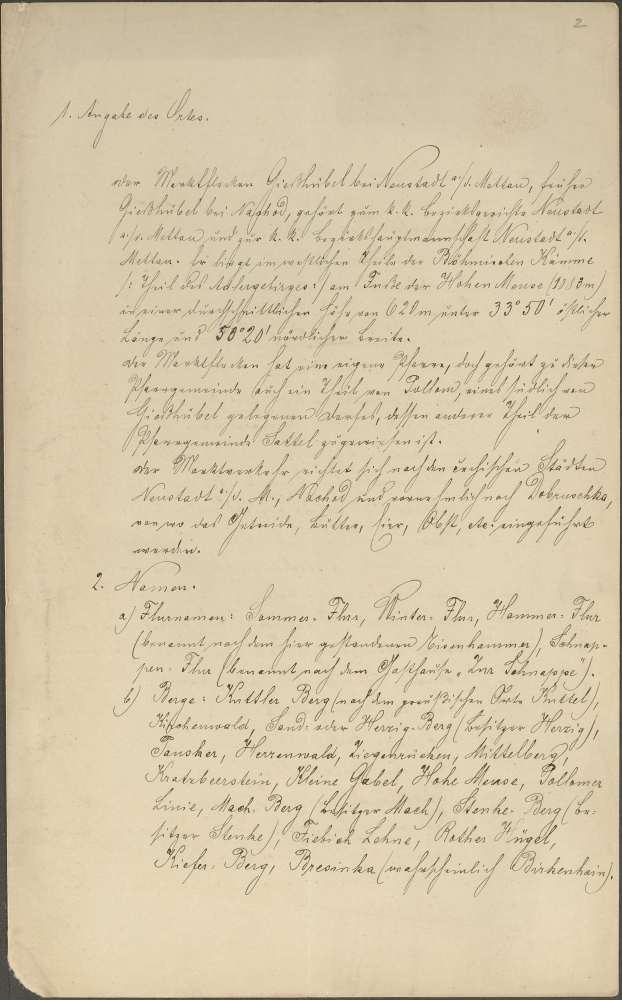 2
1. Angabe des Ortes.
Der Marktflecken Gießhübel bei Neustadt a/d. Mettau, früher
Gießhübel bei Nachod, gehört zum k. k. Bezirksgerichte Neustadt
a./d. Mettau und zur k. k. Bezirkshauptmannschaft Neustadt a/d.
Mettau. Er liegt im westlichen Theile der Böhmischen Kämme
/: Theil des Adlergebirges :/ am Fuße der Hohen Mense (1083m)
in einer durchschnittlichen Höhe von 620 m unter 33° 50' östlicher
Länge und 50° 20' nördlicher Breite.
Der Marktflecken hat eine eigene Pfarre, doch gehört zu dieser
Pfarrgemeinde auch ein Theil von Pollom, eines südlich von
Gießhübel gelegenen Dorfes, dessen anderer Theil der
Pfarrgemeinde Sattel zugewiesen ist.
Der Marktverkehr richtet sich nach den čechischen Städten
Neustadt a./d. M., Nachod und vornehmlich nach Dobruschka,
von wo das Getreide, Butter, Eier, Obst, etc. eingeführt
werden.
2. Namen.
a) Flurnamen: Sommer-Flur, Winter-Flur, Hammer-Flur
(benannt nach dem hier gestandenen Eisenhammer), Schnap-
pen-Flur (benannt nach dem Gasthause „Zur Schnappe").
b) Berge: Kuttler Berg (nach dem preußischen Orte Kuttel),
Kirchenwald, Sand- oder Herzig-Berg (Besitzer Herzig),
Tanscher, Herrenwald, Ziegenrücken, Mittelberg,
Kratzbeerstein, Kleine Gabel, Hohe Mense, Pollomer
Linie, Mach-Berg (Besitzer Mach), Stenke-Berg (Be-
sitzer Stenke), Fiebich Lehne, Rother Hügel,
Kiefer-Berg, Bresinka (wahrscheinlich Birkenhain).